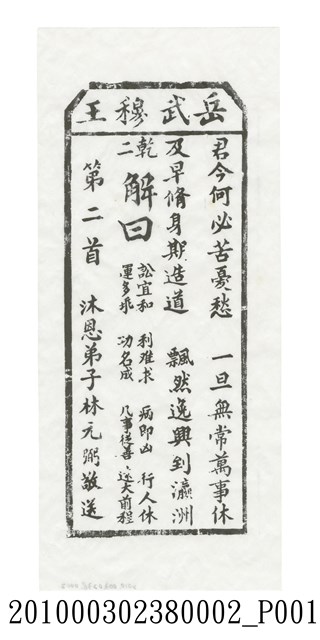 岳武穆王
君今何必苦憂愁　一旦無常萬事休
及早脩身期造道　飄然逸興到瀛洲
乾二
解曰
訟宜和　利难求　病即凶　行人休
運多乖　功名成　凡事從善、远大前程
第二首　沐恩弟子林元弼敬送
201000302380002_P001